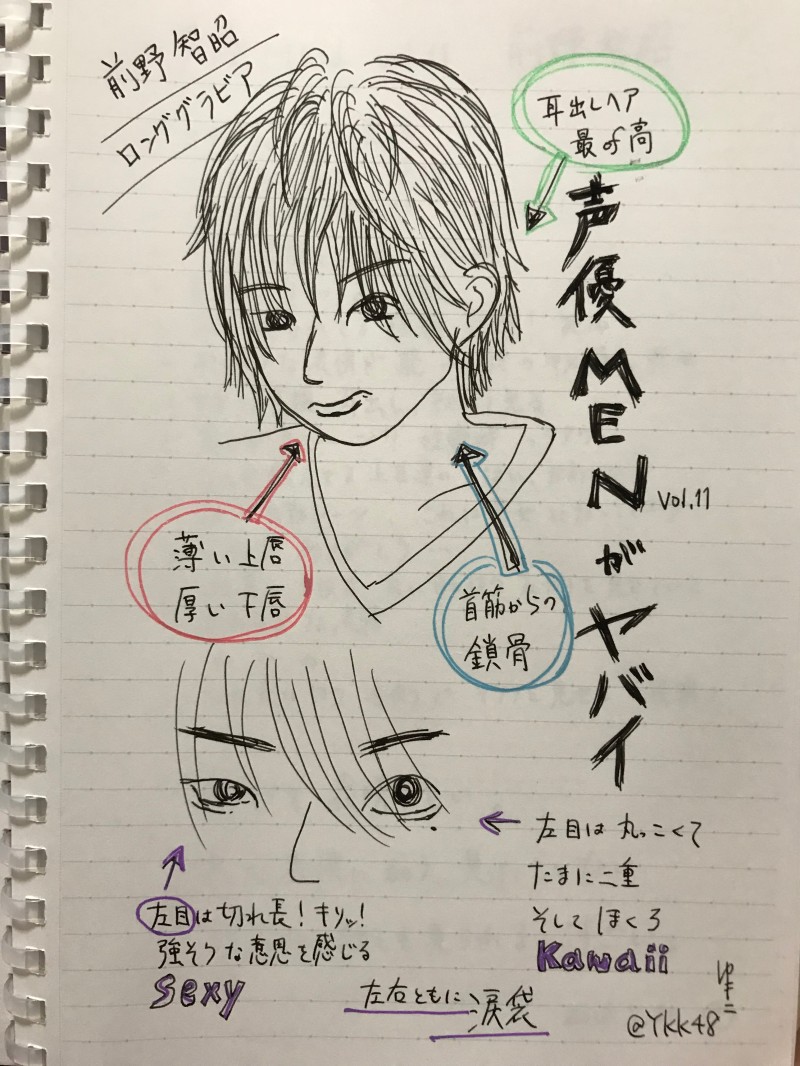 前野 智昭
ロンググラビア
耳出しヘア
最の高
声優MENがヤバイ
vol.11
薄い上唇
厚い下唇
首筋からの
鎖骨
左目は丸っこくて
たまに二重
そして ほくろ
Kawaii
左目は切れ長!キリッ!
強そうな意思を感じる
Sexy
左右ともに涙袋
@Ykk48